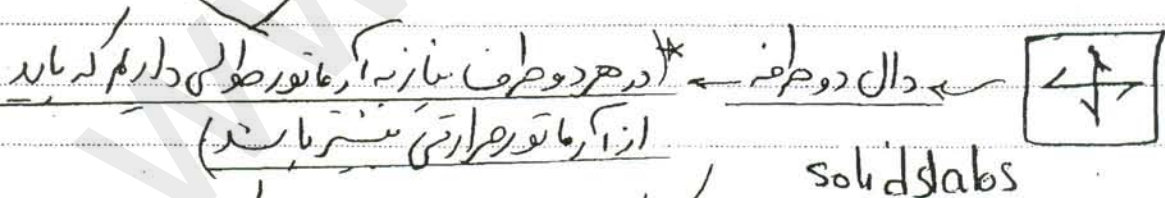 دال دو طرفه ← *(در هر دو طرف نیاز به آرماتور طولی داریم که باید
از آرماتور حرارتی بیشتر باشد)
solid slabs